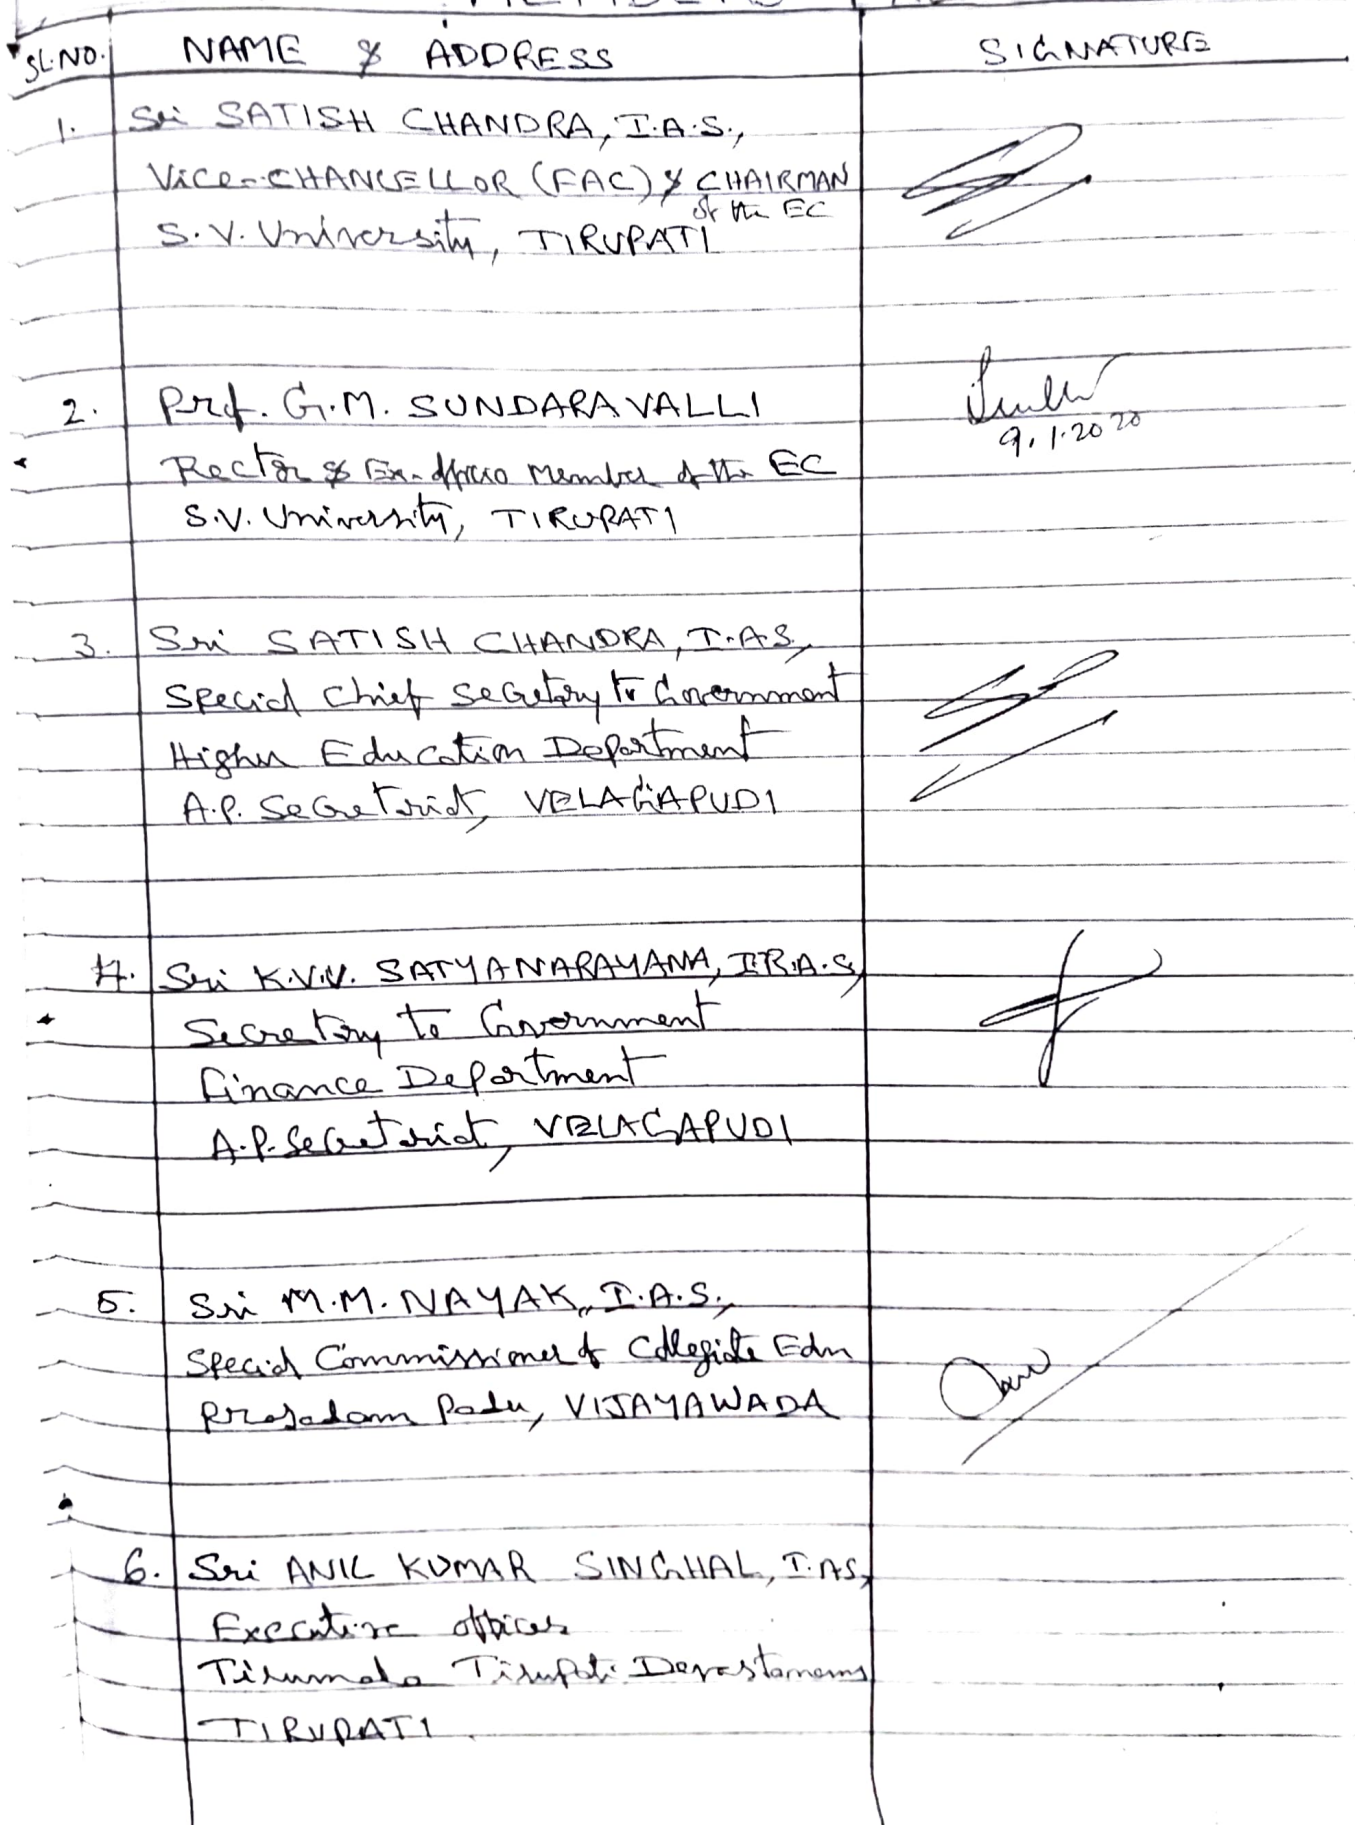 SL.NO. NAME & ADDRESS SIGNATURE
1. Sri SATISH CHANDRA, I.A.S.,
Vice-CHANCELLOR (FAC) & CHAIRMAN
of the EC
S.V. University, TIRUPATI
2. Prof. G.M. SUNDARAVALLI
9.1.2020
Rector & Ex-officio Member of the EC
S.V. University, TIRUPATI
3. Sri SATISH CHANDRA, I.A.S,
Special Chief Secretary to Government
Higher Education Department
A.P. Secretariat, VELAGAPUDI
4. Sri K.V.V. SATYANARAYANA, IR.A.S,
Secretary to Government
Finance Department
A.P. Secretariat, VELAGAPUDI
5. Sri M.M. NAYAK, I.A.S.,
Special Commissioner of Collegiate Edn
Prasadam Padu, VIJAYAWADA
6. Sri ANIL KUMAR SINGHAL, I.AS,
Executive officer
Tirumala Tirupati Devastanams
TIRUPATI.